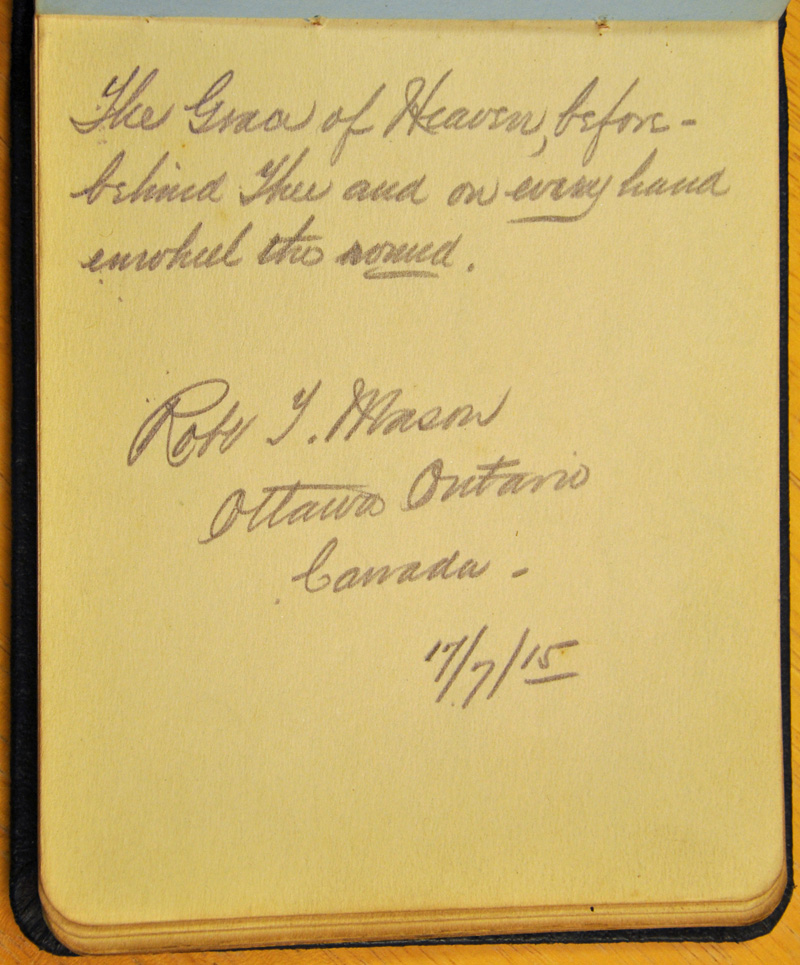 The Grace of Heaven, before-
behind Thee and on every hand
enwheel the round.
Robt T. Mason
Ottawa Ontario
Canada -
17/7/15